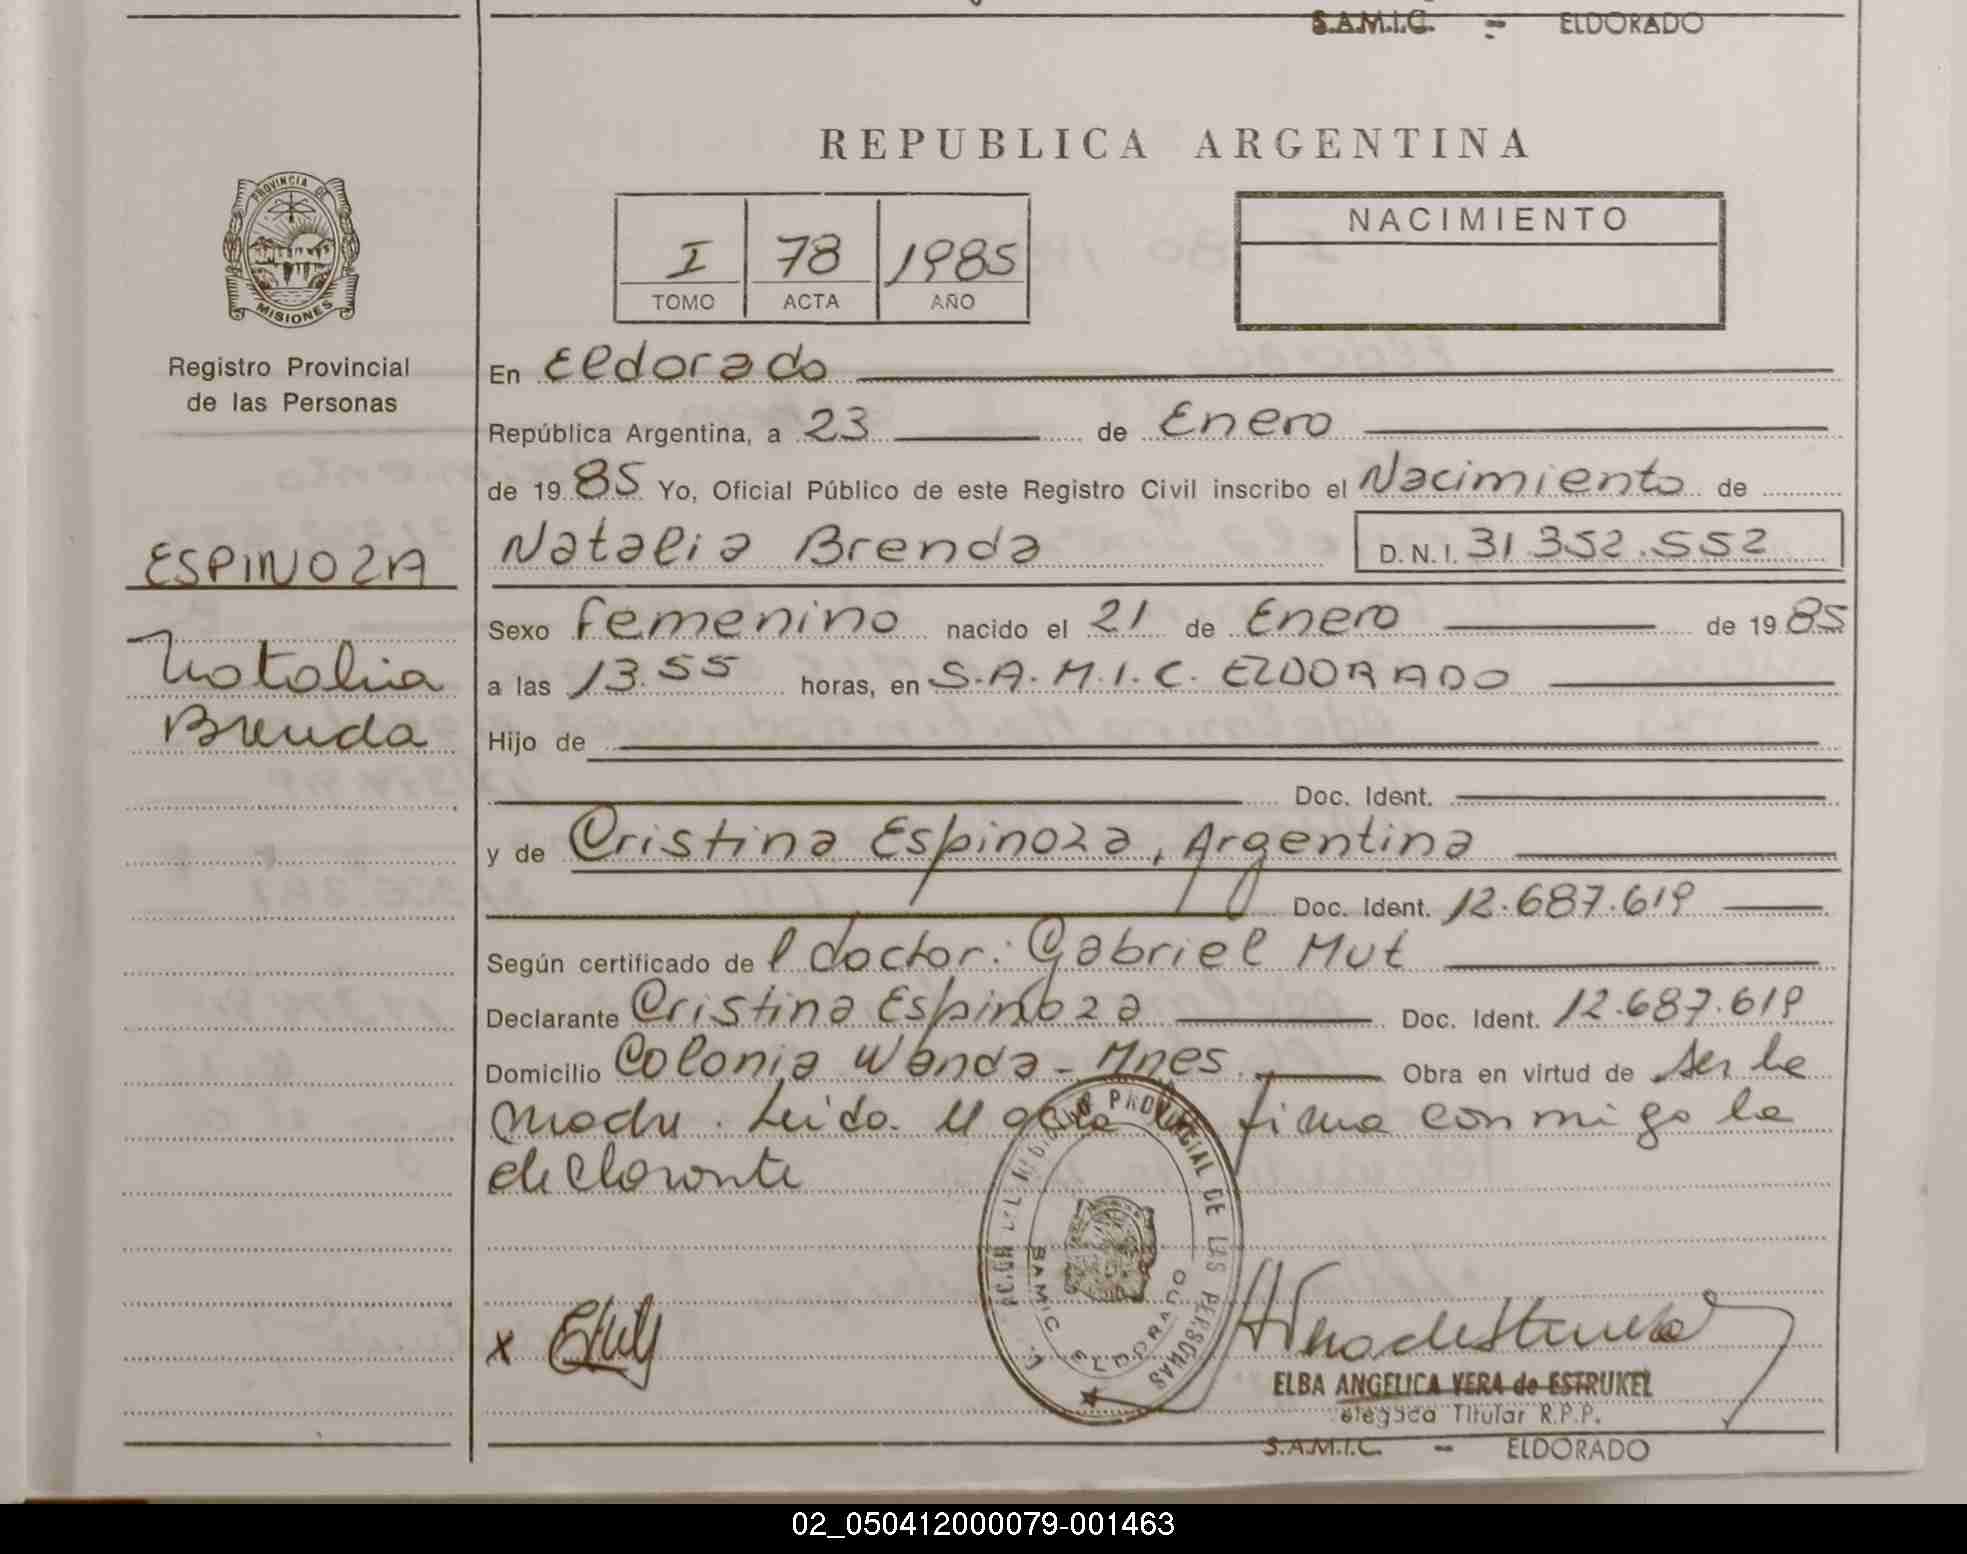 S.A.M.I.C. - ELDORADO
REPUBLICA ARGENTINA
PROVINCIA DE MISIONES
I 78 1985
TOMO ACTA AÑO
NACIMIENTO
Registro Provincial
de las Personas
En Eldorado
República Argentina, a 23 de Enero
de 19 85 Yo, Oficial Público de este Registro Civil inscribo el Nacimiento de
ESPINOZA
Natalia
Brenda
Natalia Brenda D.N.I. 31.352.552
Sexo femenino nacido el 21 de Enero de 19 85
a las 13.55 horas, en S.A.M.I.C. ELDORADO
Hijo de
Doc. Ident.
y de Cristina Espinoza, Argentina
Doc. Ident. 12.687.619
Según certificado de l doctor: Gabriel Mut
Declarante Cristina Espinoza Doc. Ident. 12.687.619
Domicilio Colonia Wanda - Mnes. Obra en virtud de ser la
madre. Leida el acta la firma conmigo la
declarante
PROVINCIAL DE LAS PERSONAS
SAMIC ELDORADO
x
ELBA ANGELICA VERA de ESTRUKEL
elegada Titular R.P.P.
S.A.M.I.C. - ELDORADO
02_050412000079-001463